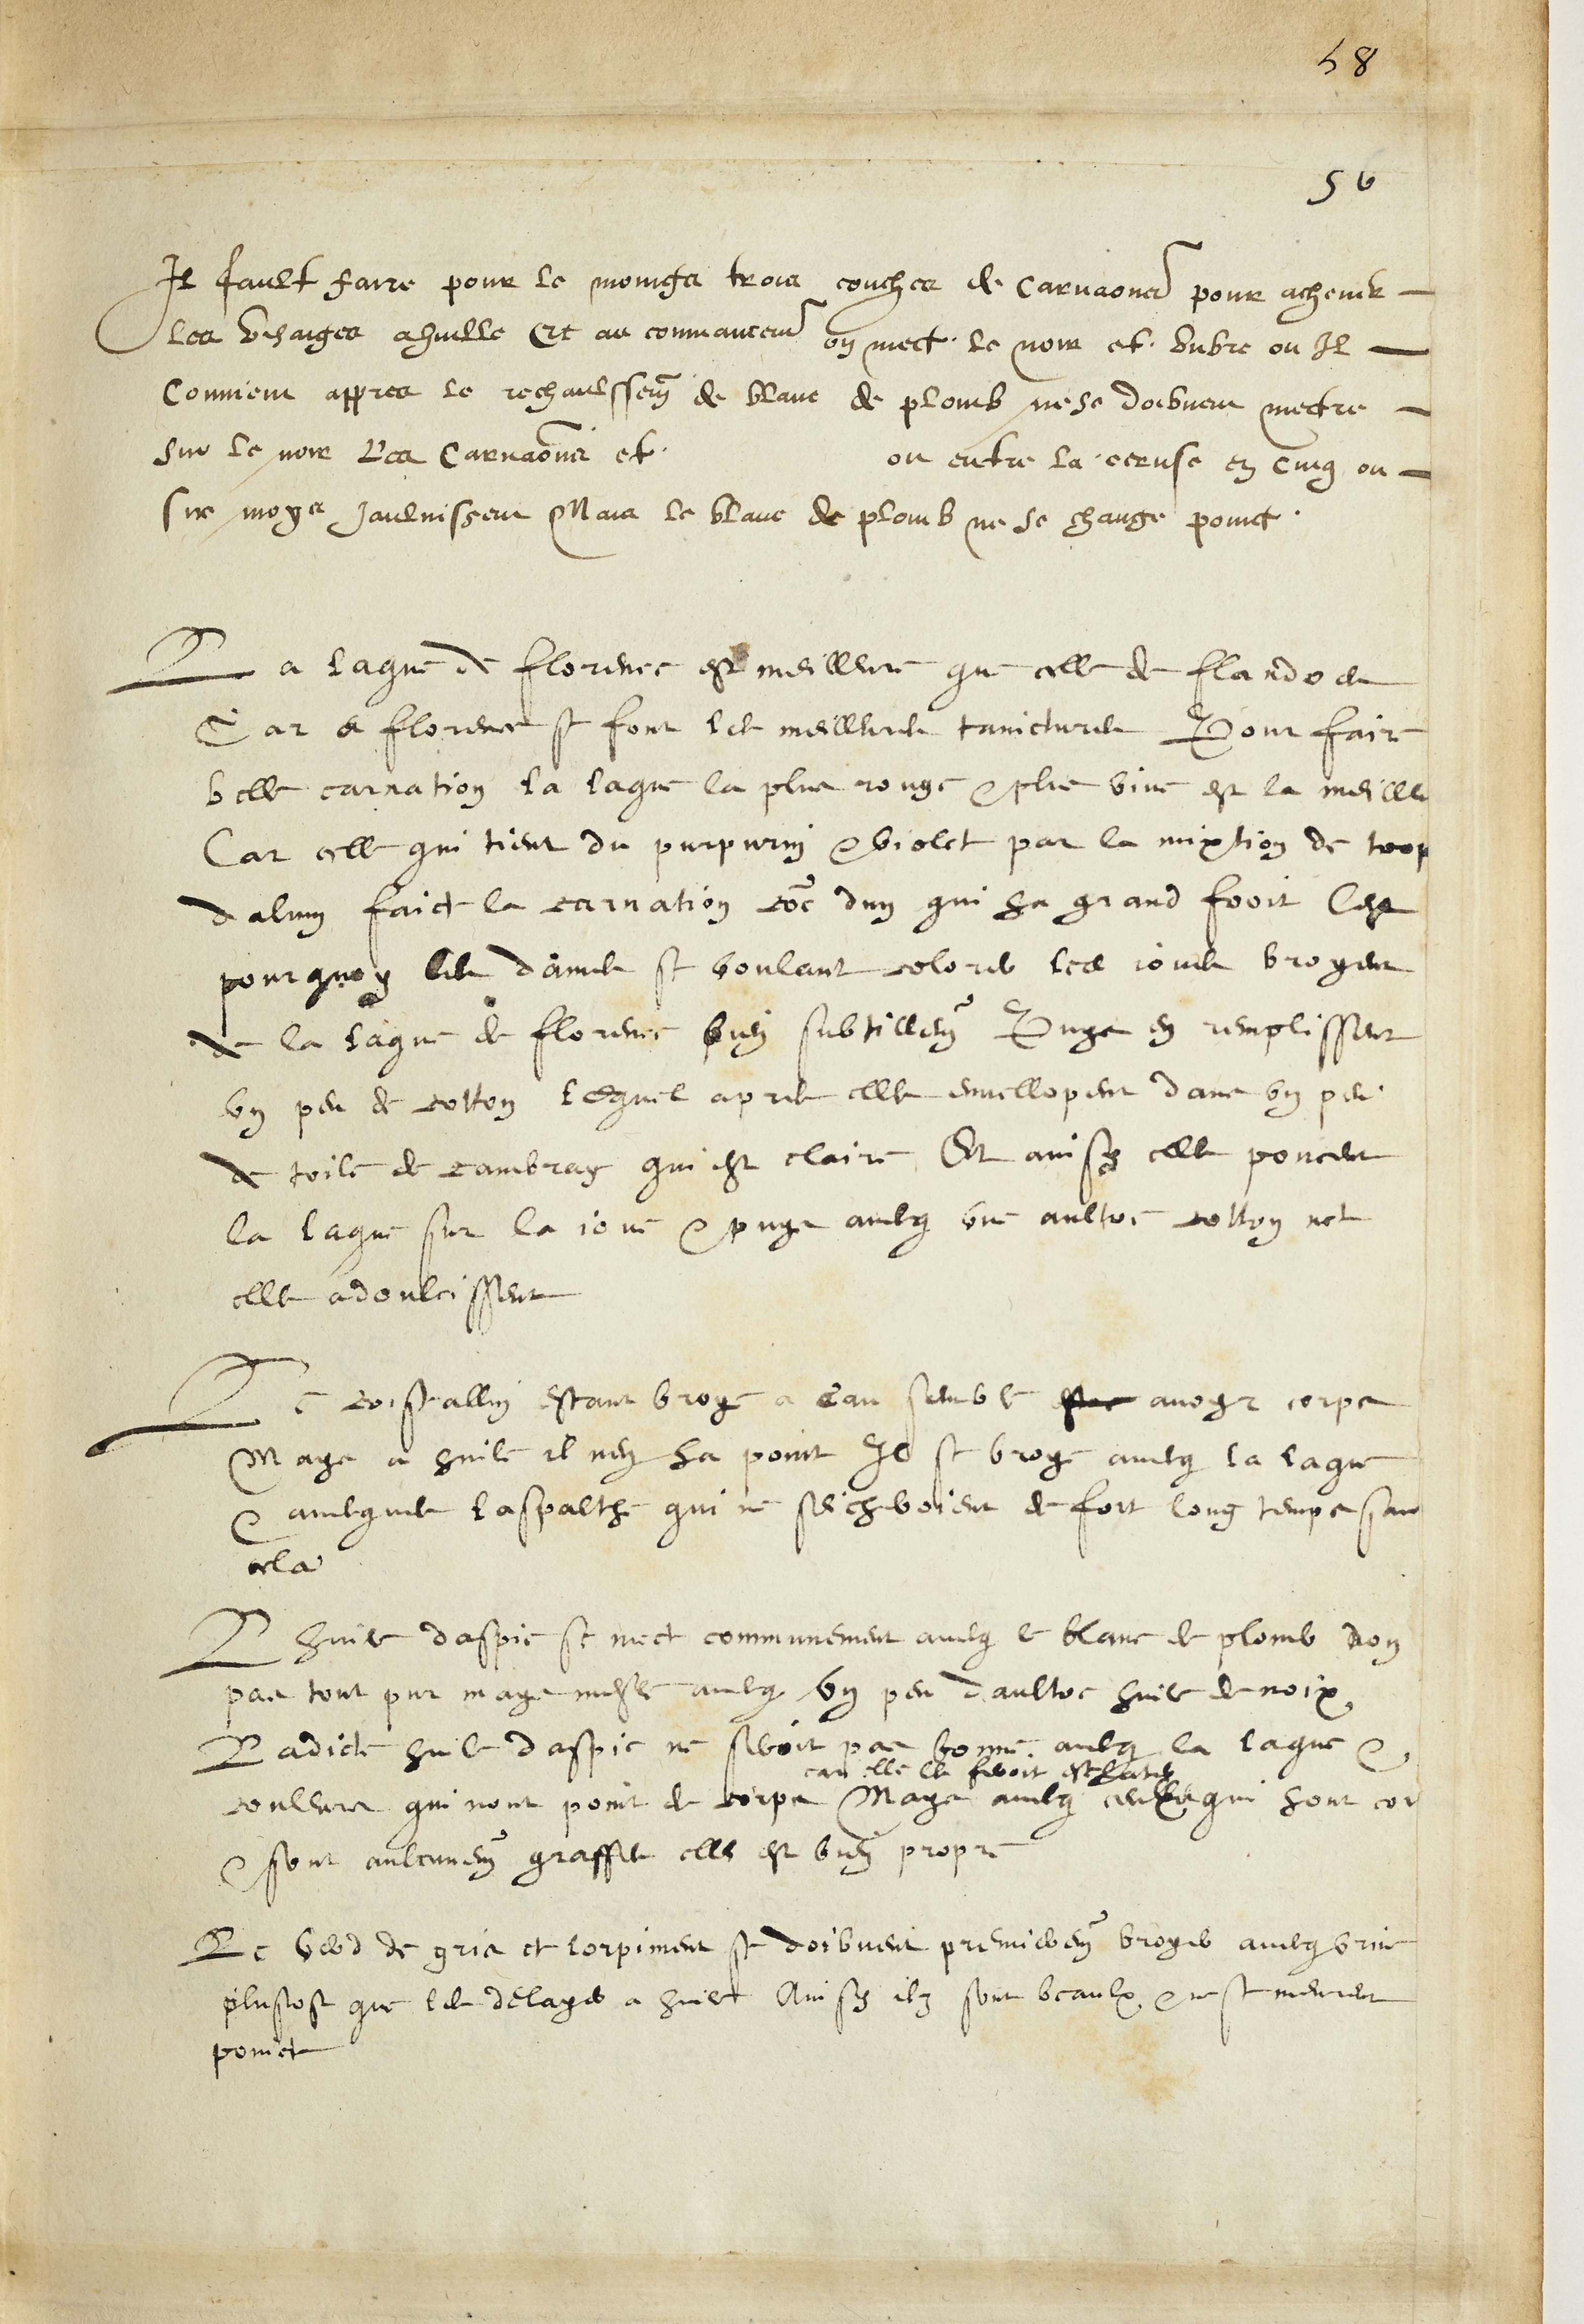 58
56
Il fault faire pour le moings trois couches de Carnaõns pour achever
les visaiges a huille Et au commancem̃ on mect le noir et umbre ou Il
Convient appres le rechaulssem̃ de blanc de plomb ne se doibvent mectre
sur le noir Les Carnaõns et ou entre la ceruse en cinq ou
six moys Jaulnissent Mais le blanc de plomb ne se change poinct
La laque de florence est meilleure que celle de flandres
Car a florence se font les meilleures tainctures Pour faire
belle carnation la laque la plus rouge & plus vive est la meille
Car celle qui tient du purpurin & violet par la mixtion de trop
dalum faict la carnation cõe dun qui ha grand froit Cest
pourquoy les dames se voulant colorer les joues broyent
de la laque de florence bien subtillem̃ Puys en remplissent
un peu de cotton lequel apres elles envellopent dans un peu
de toile de cambray qui est claire Et ainsy elles poncent
la laque sur la joue & puys avecq une aultre cotton net
elles adoulcissent
Le cristallin estant broye a eau semble avoyr corps
Mays a huile il nen ha point Il se broye avecq la laque
& avecques laspalthe qui ne seicheroient de fort long temps san
cela
Lhuile daspic se mect communement avecq le blanc de plomb non
pas tout pur mays mesle avecq un peu daultre huile de noix
Ladicte huile daspic ne seroit pas bonne avecq la laque &
car elle les feroit esclater
couleurs qui nont point de corps Mays avecq celles qui hont cor
& sont aulcunem̃ grasses elle est bien propre
Le verd de gris et lorpiment se doibvent premierem̃ broyer avecq urine
plustost que les delayer a huile Ainsy ilz sont beaulx & ne se meurent
poinct